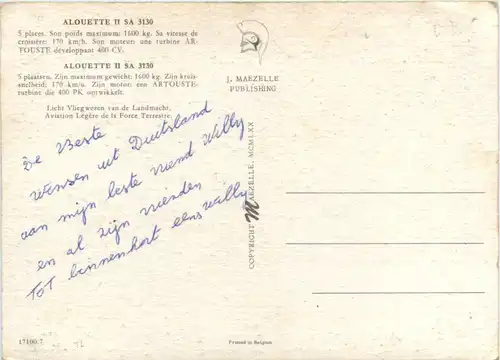 ALOUETTE II SA 3130
5 places. Son poids maximum: 1600 kg. Sa vitesse de
croisière: 170 km/h. Son moteur: une turbine AR-
TOUSTE développant 400 CV.
ALOUETTE II SA 3130
5 plaatsen. Zijn maximum gewicht: 1600 kg. Zijn kruis-
snelheid: 170 km/u. Zijn motor: een ARTOUSTE-
turbine die 400 PK ontwikkelt.
Licht Vliegwezen van de Landmacht.
Aviation Légère de la Force Terrestre.
De Beste
wensen uit Duitsland
aan mijn beste vriend Willy
en al zijn vrienden
Tot binnenkort eens Willy
17100/7
J. MAEZELLE
PUBLISHING
COPYRIGHT MAEZELLE, MCMLXX
Printed in Belgium